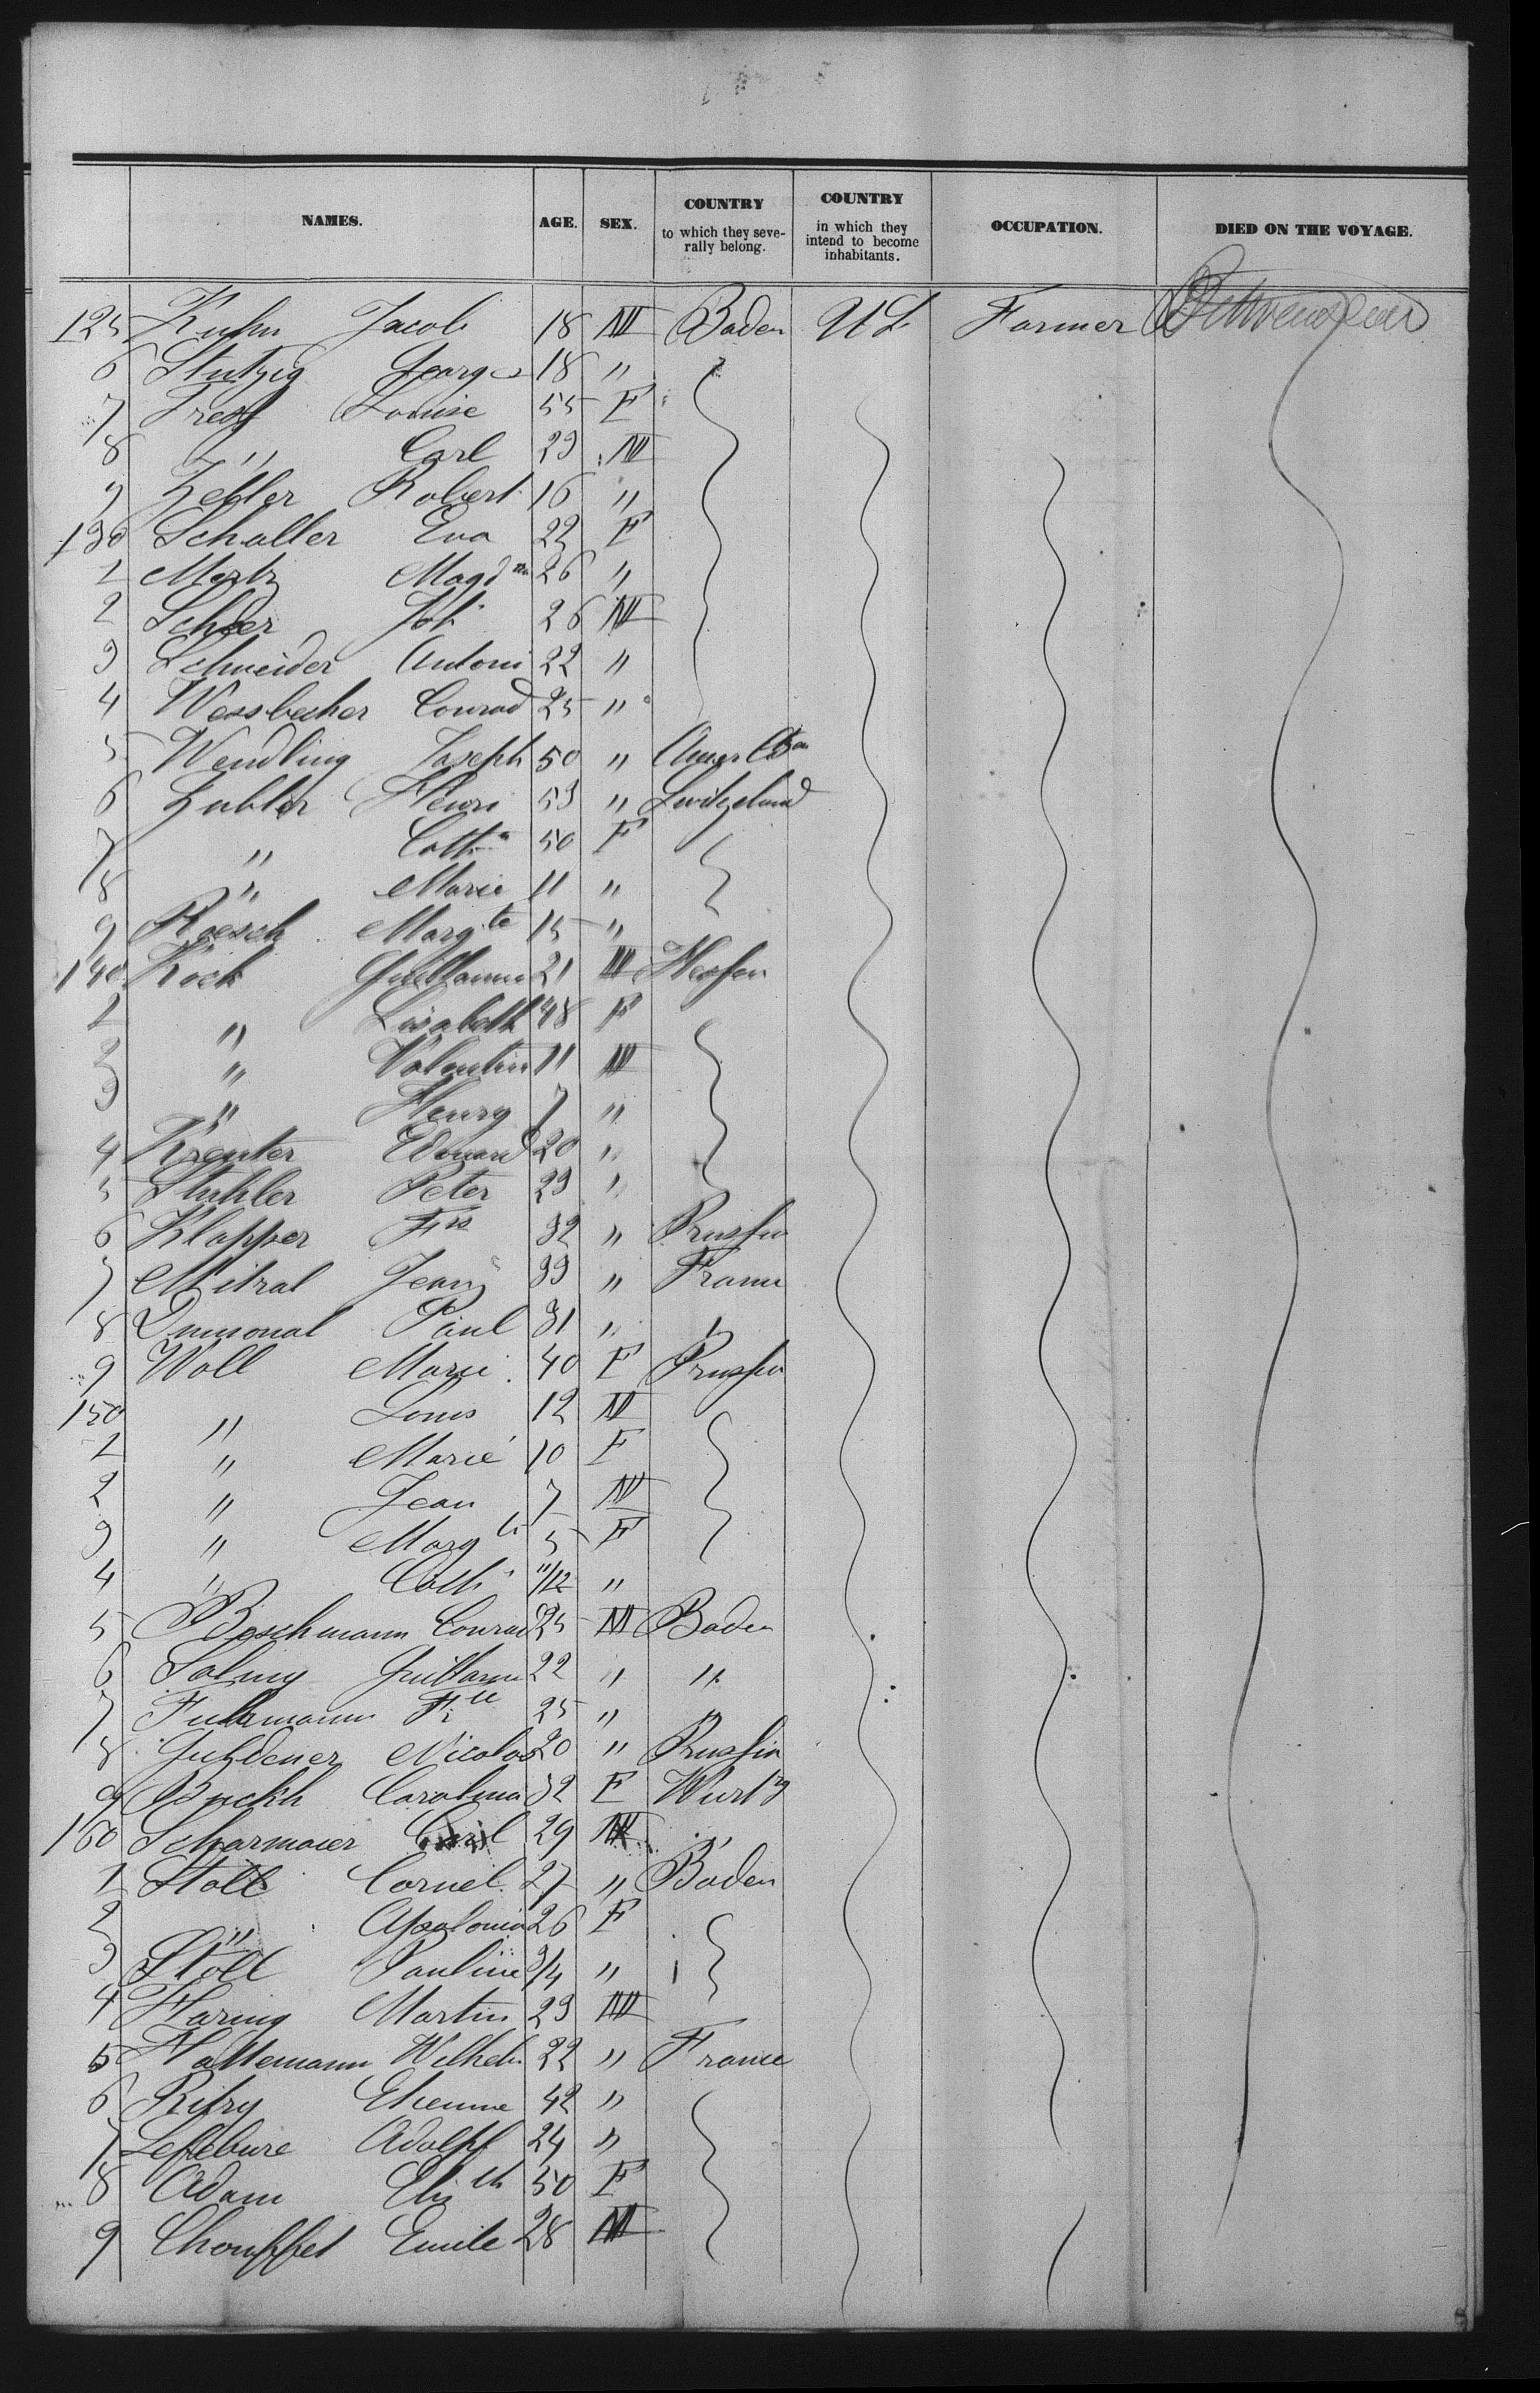 NAMES. AGE. SEX. COUNTRY to which they severally belong. COUNTRY in which they intend to become inhabitants. OCCUPATION. DIED ON THE VOYAGE.
125 Kuhn Jacob 18 M Baden US Farmer Betweendeck
6 Stutzig George 18 "
7 Louise 55 F
8 " Carl 23 M
9 Zeller Robert 16 "
130 Schaller Eva 22 F
1 Mertz Magd 26 "
2 26 M
3 Schneider Antoni 22 "
4 Wessbecher Conrad 25 "
5 Wendling Joseph 50 "
6 Zubler Henri 53 " Switzeland
7 " Cath 50 F
8 " Marie 11 "
9 Roesch Margte 15 "
140 Kock Guillaume 21 M Hessen
1 " Lisabeth 48 F
2 " Valentin 11 M
3 " Henry 7 "
4 Kreuter Edouard 20 "
5 Stuhler Peter 23 "
6 Klapper Frs 32 " Prussia
7 Mitral Jean 33 " France
8 Paul 31 " "
9 Woll Marie 40 F Prussia
150 " Louis 12 M
1 " Marie 10 F
2 " Jean 7 M
3 " Margte 5 F
4 " Cath 11/12 "
5 Beschmann Conrad 25 M Baden
6 Guillaume 22 " "
7 Fuhrmann 25 " "
8 Nicolas 20 " Prussia
9 Buckh Carolina 32 F Wurtg
160 Scharmaier Carl 29 M "
1 Stoll Cornel. 27 " Baden
2 " Apolonia 26 F
3 Stoll Pauline 3/4 "
4 Haring Martin 23 M
5 Haltemann Wilhelm 22 " France
6 Etienne 42 "
7 Lefebure Adolph 24 "
8 Adam Elisth 50 F
9 Chouffet Emile 28 M